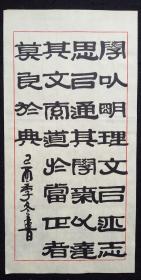 學以明理文以述志
思以通其學氣以達
其文索道於當世者
莫良於典
己酉季冬書